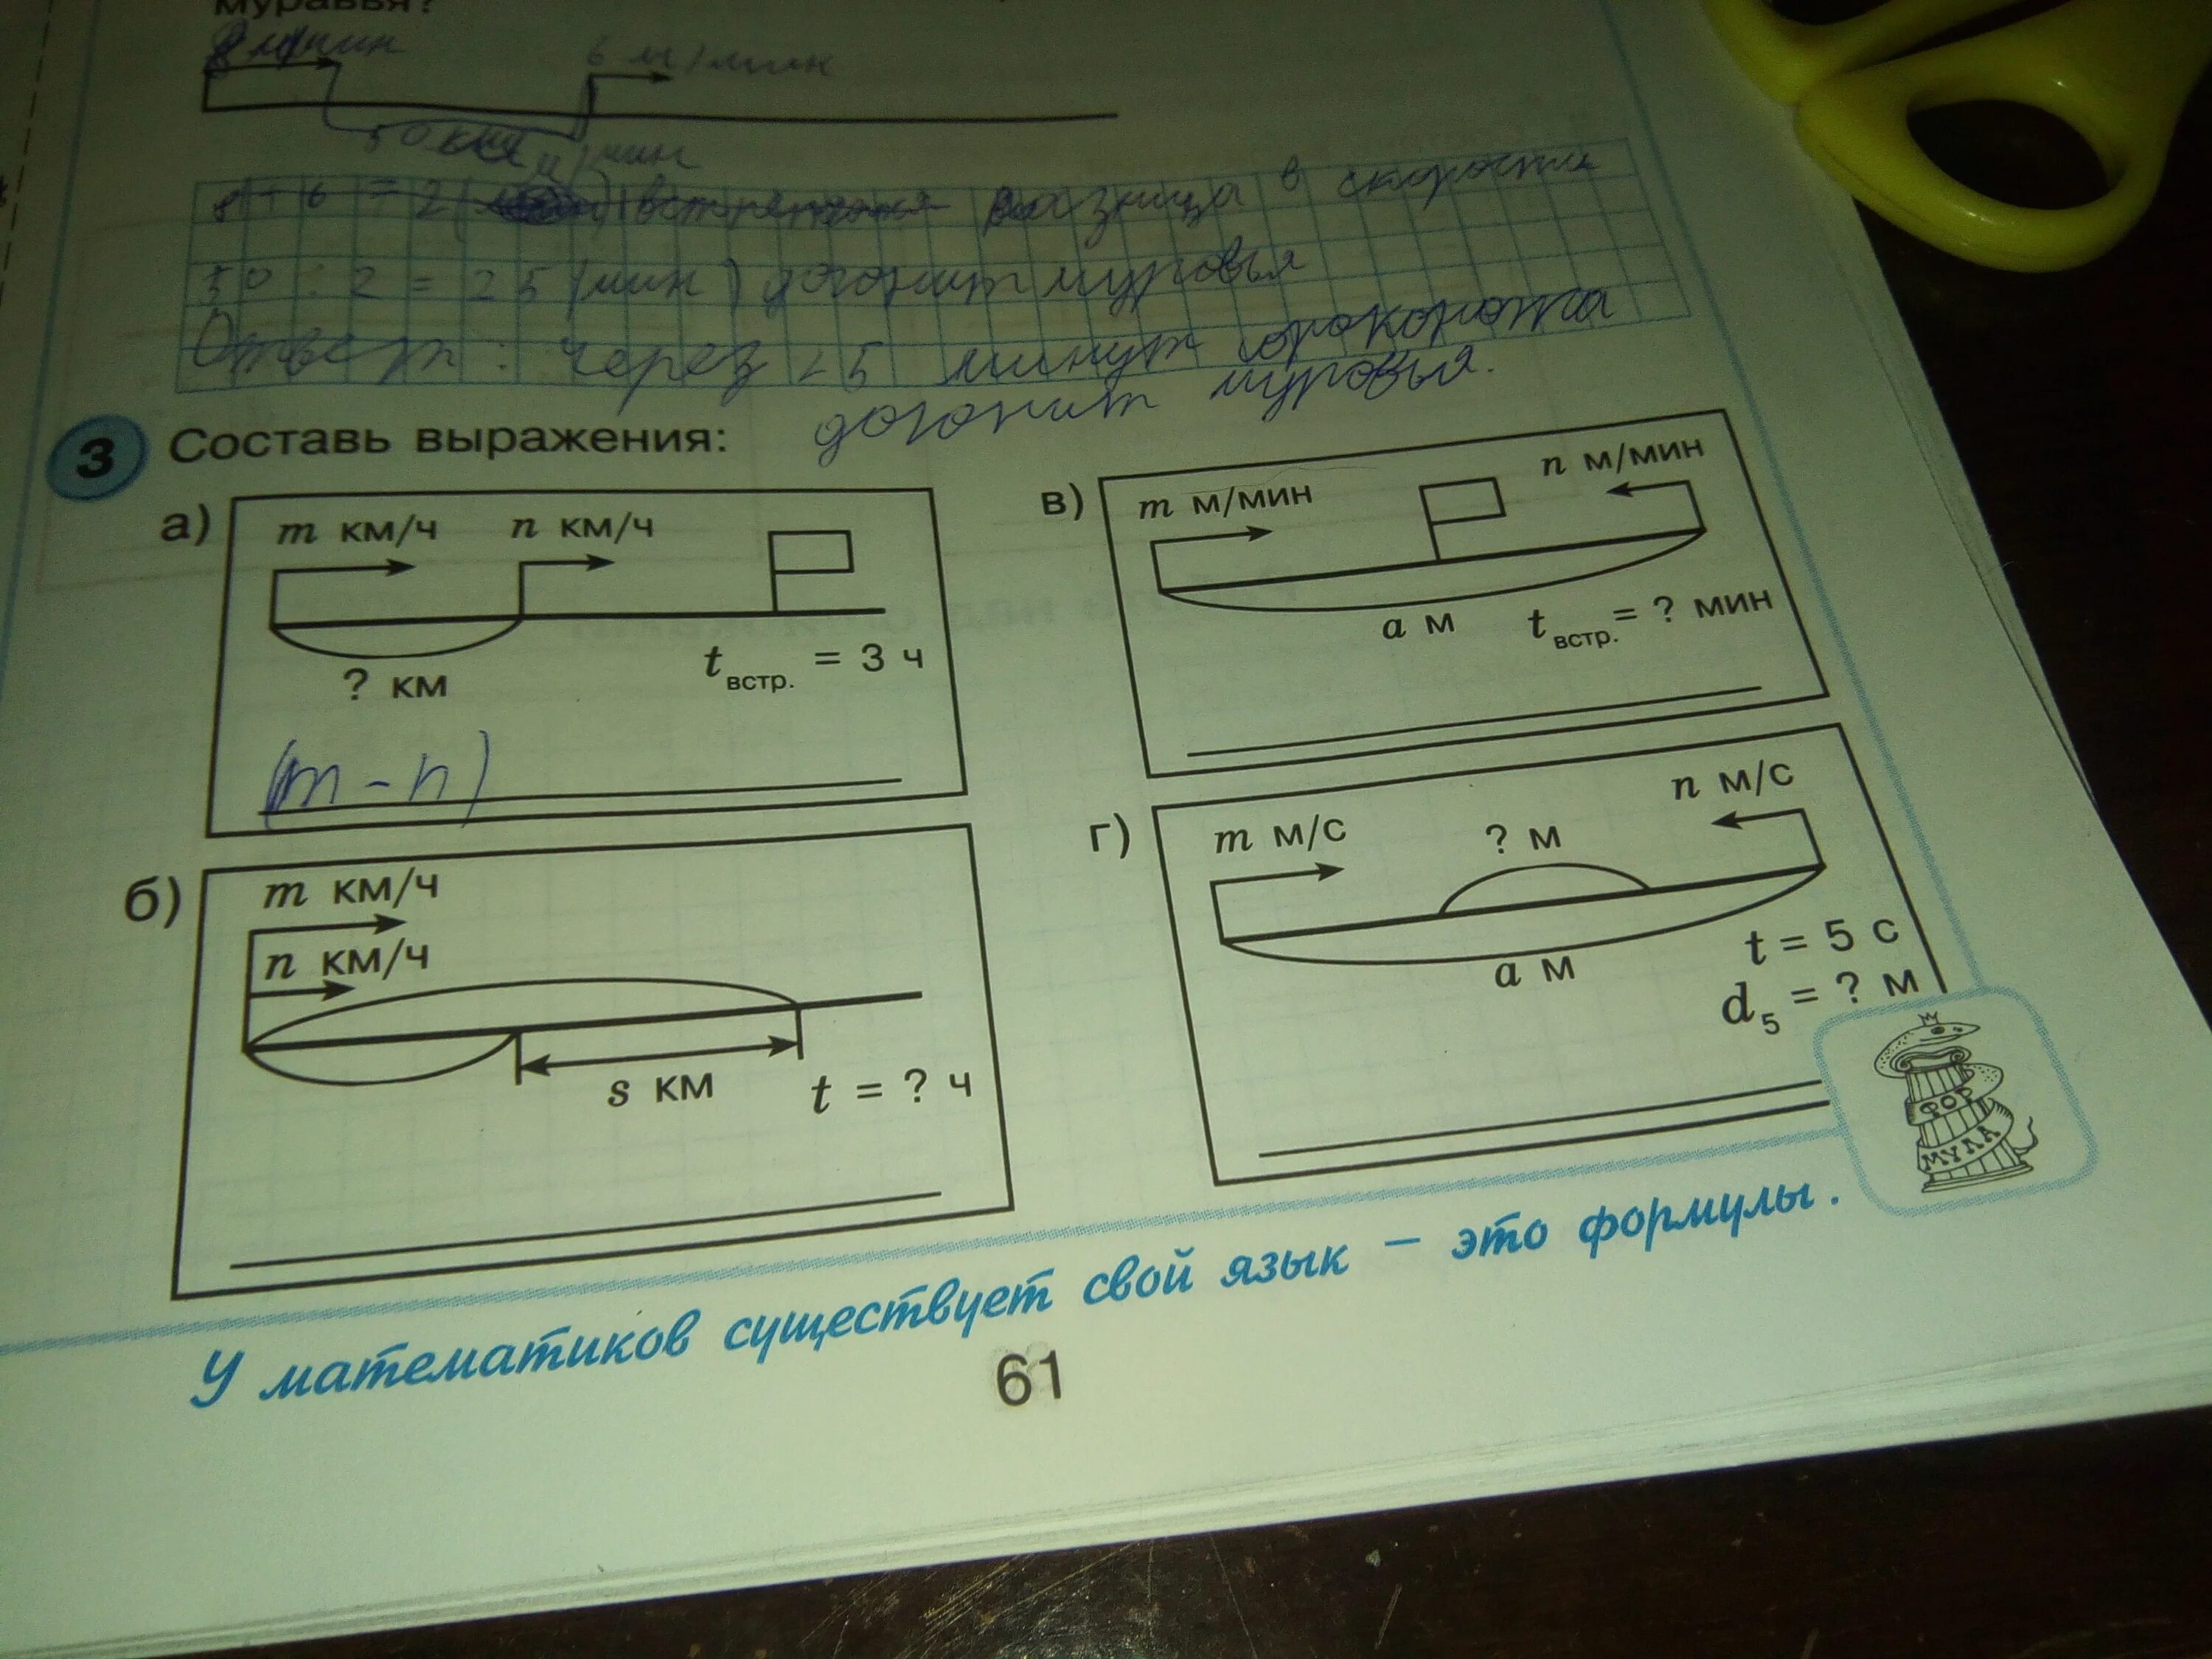 муравья?
8 м/мин
6 м/мин
50
м/мин
8 - 6 = 2 ( ) встретятся разница в скорости
50 : 2 = 25 (мин) догонит муровья
Ответ: через 25 минут
догонит муровья.
3 Составь выражения:
а)
m км/ч n км/ч
? км
t встр. = 3 ч
(m - n)
б)
m км/ч
n км/ч
s км
t = ? ч
в)
m м/мин
n м/мин
a м
t встр. = ? мин
г)
m м/с
? м
n м/с
a м
t = 5 с
d₅ = ? м
ФОР
МУЛА
У математиков существует свой язык – это формулы.
61